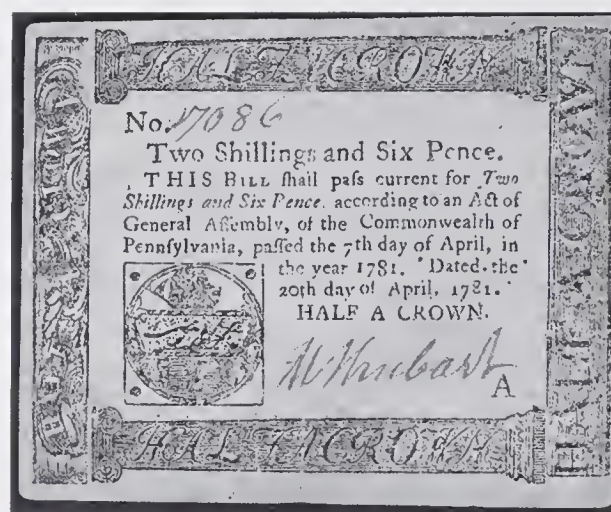 HALF A CROWN
No. 17086
Two Shillings and Six Pence.
THIS BILL ſhall paſs current for Two
Shillings and Six Pence, according to an Act of
General Aſſembly, of the Commonwealth of
Pennſylvania, paſſed the 7th day of April, in
the year 1781. Dated the
20th day of April, 1781.
HALF A CROWN.
A
HALF A CROWN
HALF A CROWN
HALF A CROWN